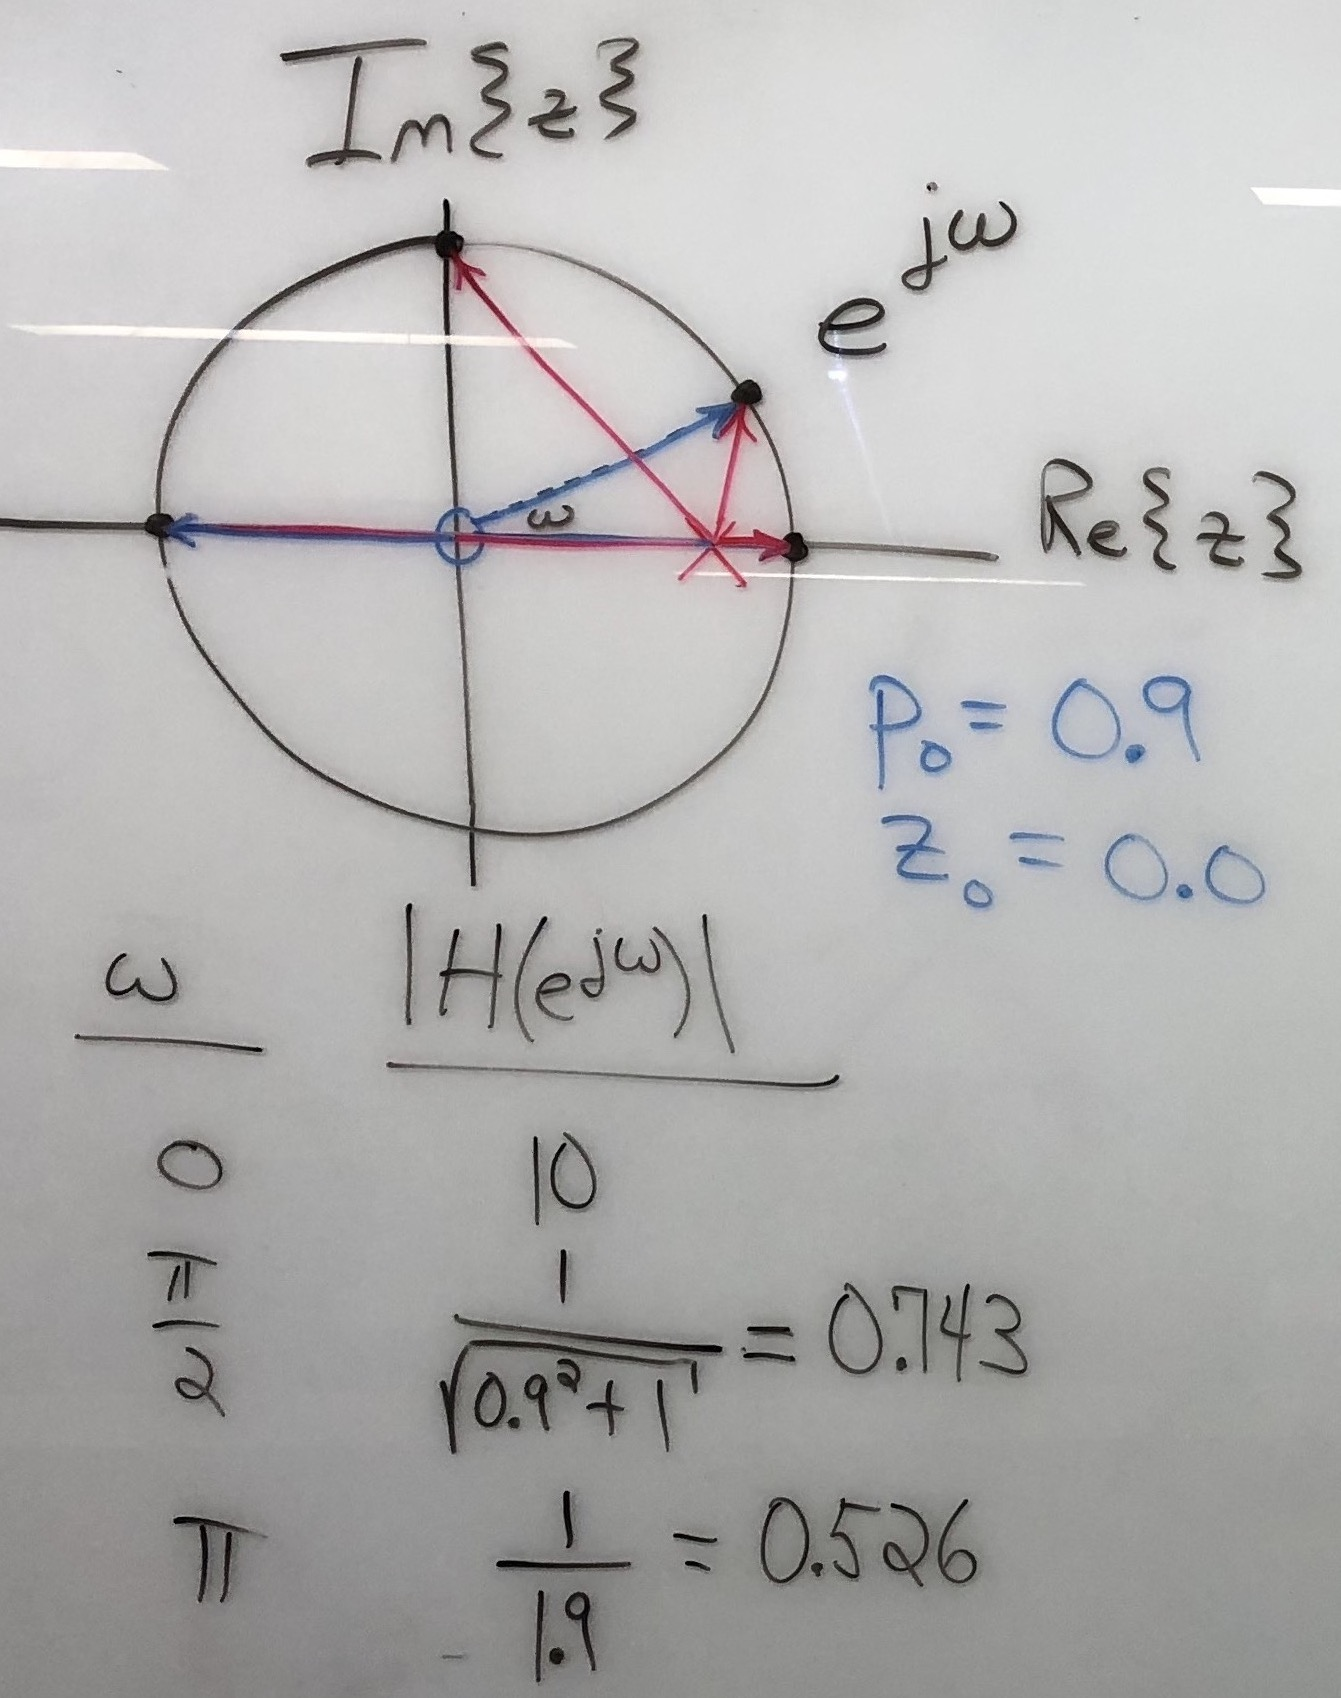 Im{z}
e^jω
ω
Re{z}
p₀ = 0.9
z₀ = 0.0
ω |H(e^jω)|
0 10
π/2 1/√(0.9²+1) = 0.743
π 1/1.9 = 0.526